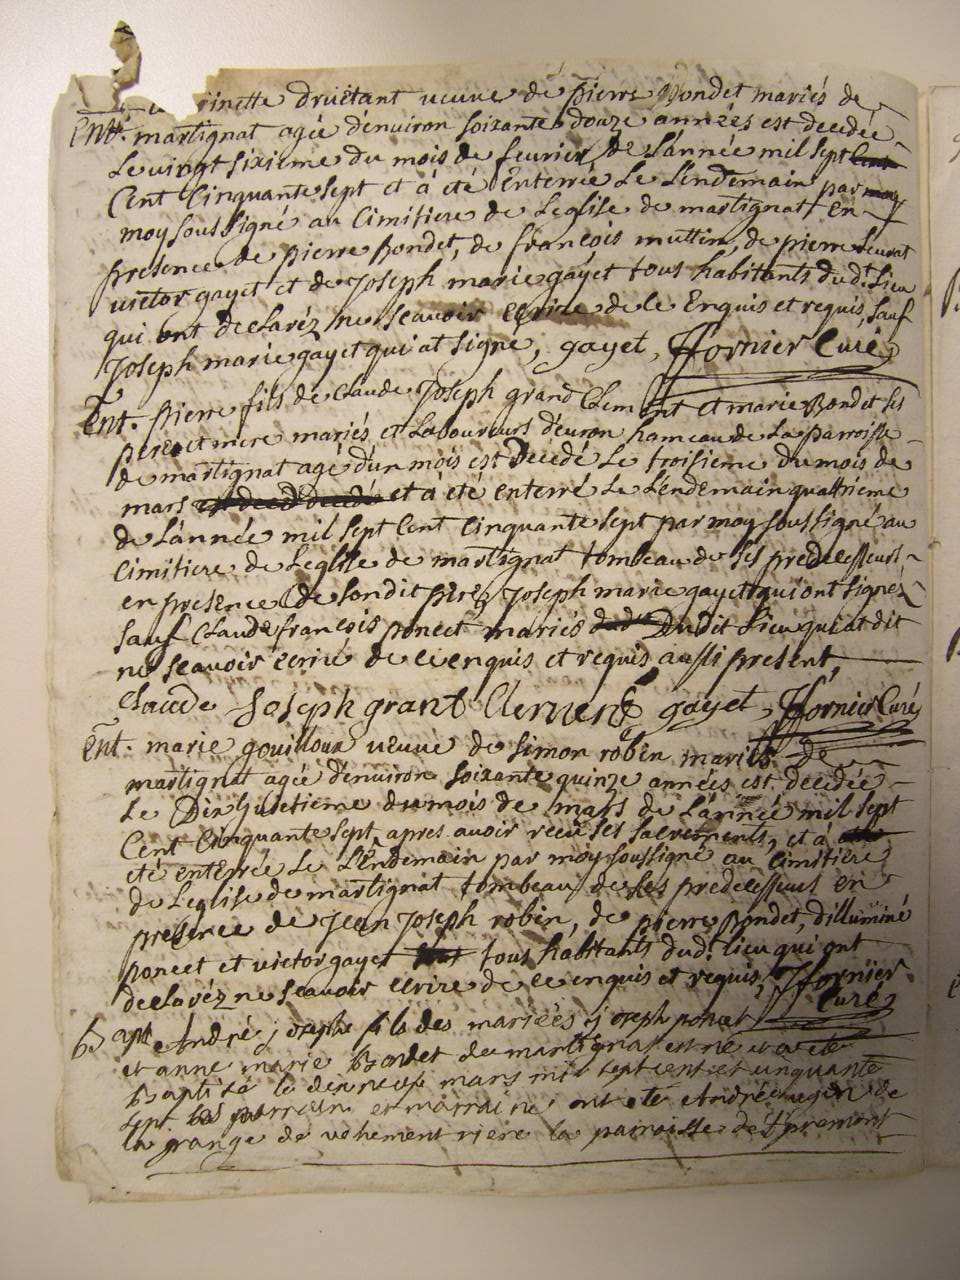 rinette druëtant veuve de pierre Bondet mariés de
Entt. martignat agée d'environ soixante douze années est decedée
Le vingt sixieme du mois de fevrier de L'année mil sept
Cent Cinquante sept et á eté Enterrée Le L'endemain par
moy soussigné au Cimitiere de L'eglise de martignat En
presence de pierre Bondet, de françois muttin, de pierre
victor gayet et de Joseph marie gayet tous habitants dud.t Lieu
qui ont declaréz ne sçeavoir Ecrire de ce Enquis et requis, sauf
Joseph marie gayet qui at signé, gayet, ffornier Curé
Ent. pierre fils de Claude Joseph grand Clement et marie Bondet ses
pere et mere mariés et Laboureurs d'evron hameau de La parroisse
de martignat agé d'un mois est Decedé Le troisieme du mois de
mars et á eté enterré Le L'endemain quattrieme
de L'année mil sept Cent Cinquante sept par moy soussigné au
Cimitiere de L'eglise de martignat tombeau de ses predecesseurs
en presence de Sondit pere, Joseph marie gayet qui ont signés
sauf Claude françois poncet mariés Dudit Lieu qui at dit
ne sçeavoir ecrire de ce enquis et requis aussi present,
Claude Joseph grant Clement gayet, ffornier Curé
Ent. marie gouilloux veuve de simon robin mariés de
martignat agée d'environ soixante quinze années est decedée
Le Dix huictieme du mois de mars de L'année mil sept
Cent Cinquante sept, apres avoir receu ses sacrements, et á
eté enterrée Le L'Endemain par moy soussigné au Cimitiere
de L'eglise de martignat tombeau de ses predecesseurs en
presence de Jean Joseph robin, de pierre Bondet, d'illuminé
poncet et victor gayet tous habitants dud.t Lieu qui ont
declaréz ne sçeavoir ecrire de ce enquis et requis, ffornier
Curé
Bapt André joseph fils des mariées joseph poncet
et anne marie Bondet de martignat est né et a eté
Baptisé le dixneuf mars mil sept cent cinquante
sept parrain et marraine ont eté André de
la grange de vehement riere la parroisse de